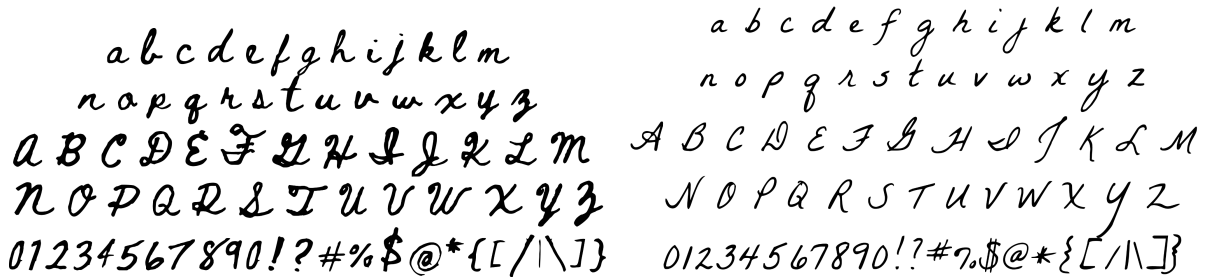 a b c d e f g h i j k l m
n o p q r s t u v w x y z
A B C D E F G H I J K L M
N O P Q R S T U V W X Y Z
01234567890!?#%$@*{[/|\]}
a b c d e f g h i j k l m
n o p q r s t u v w x y z
A B C D E F G H I J K L M
N O P Q R S T U V W X Y Z
01234567890!?#%$@*{[/|\]}